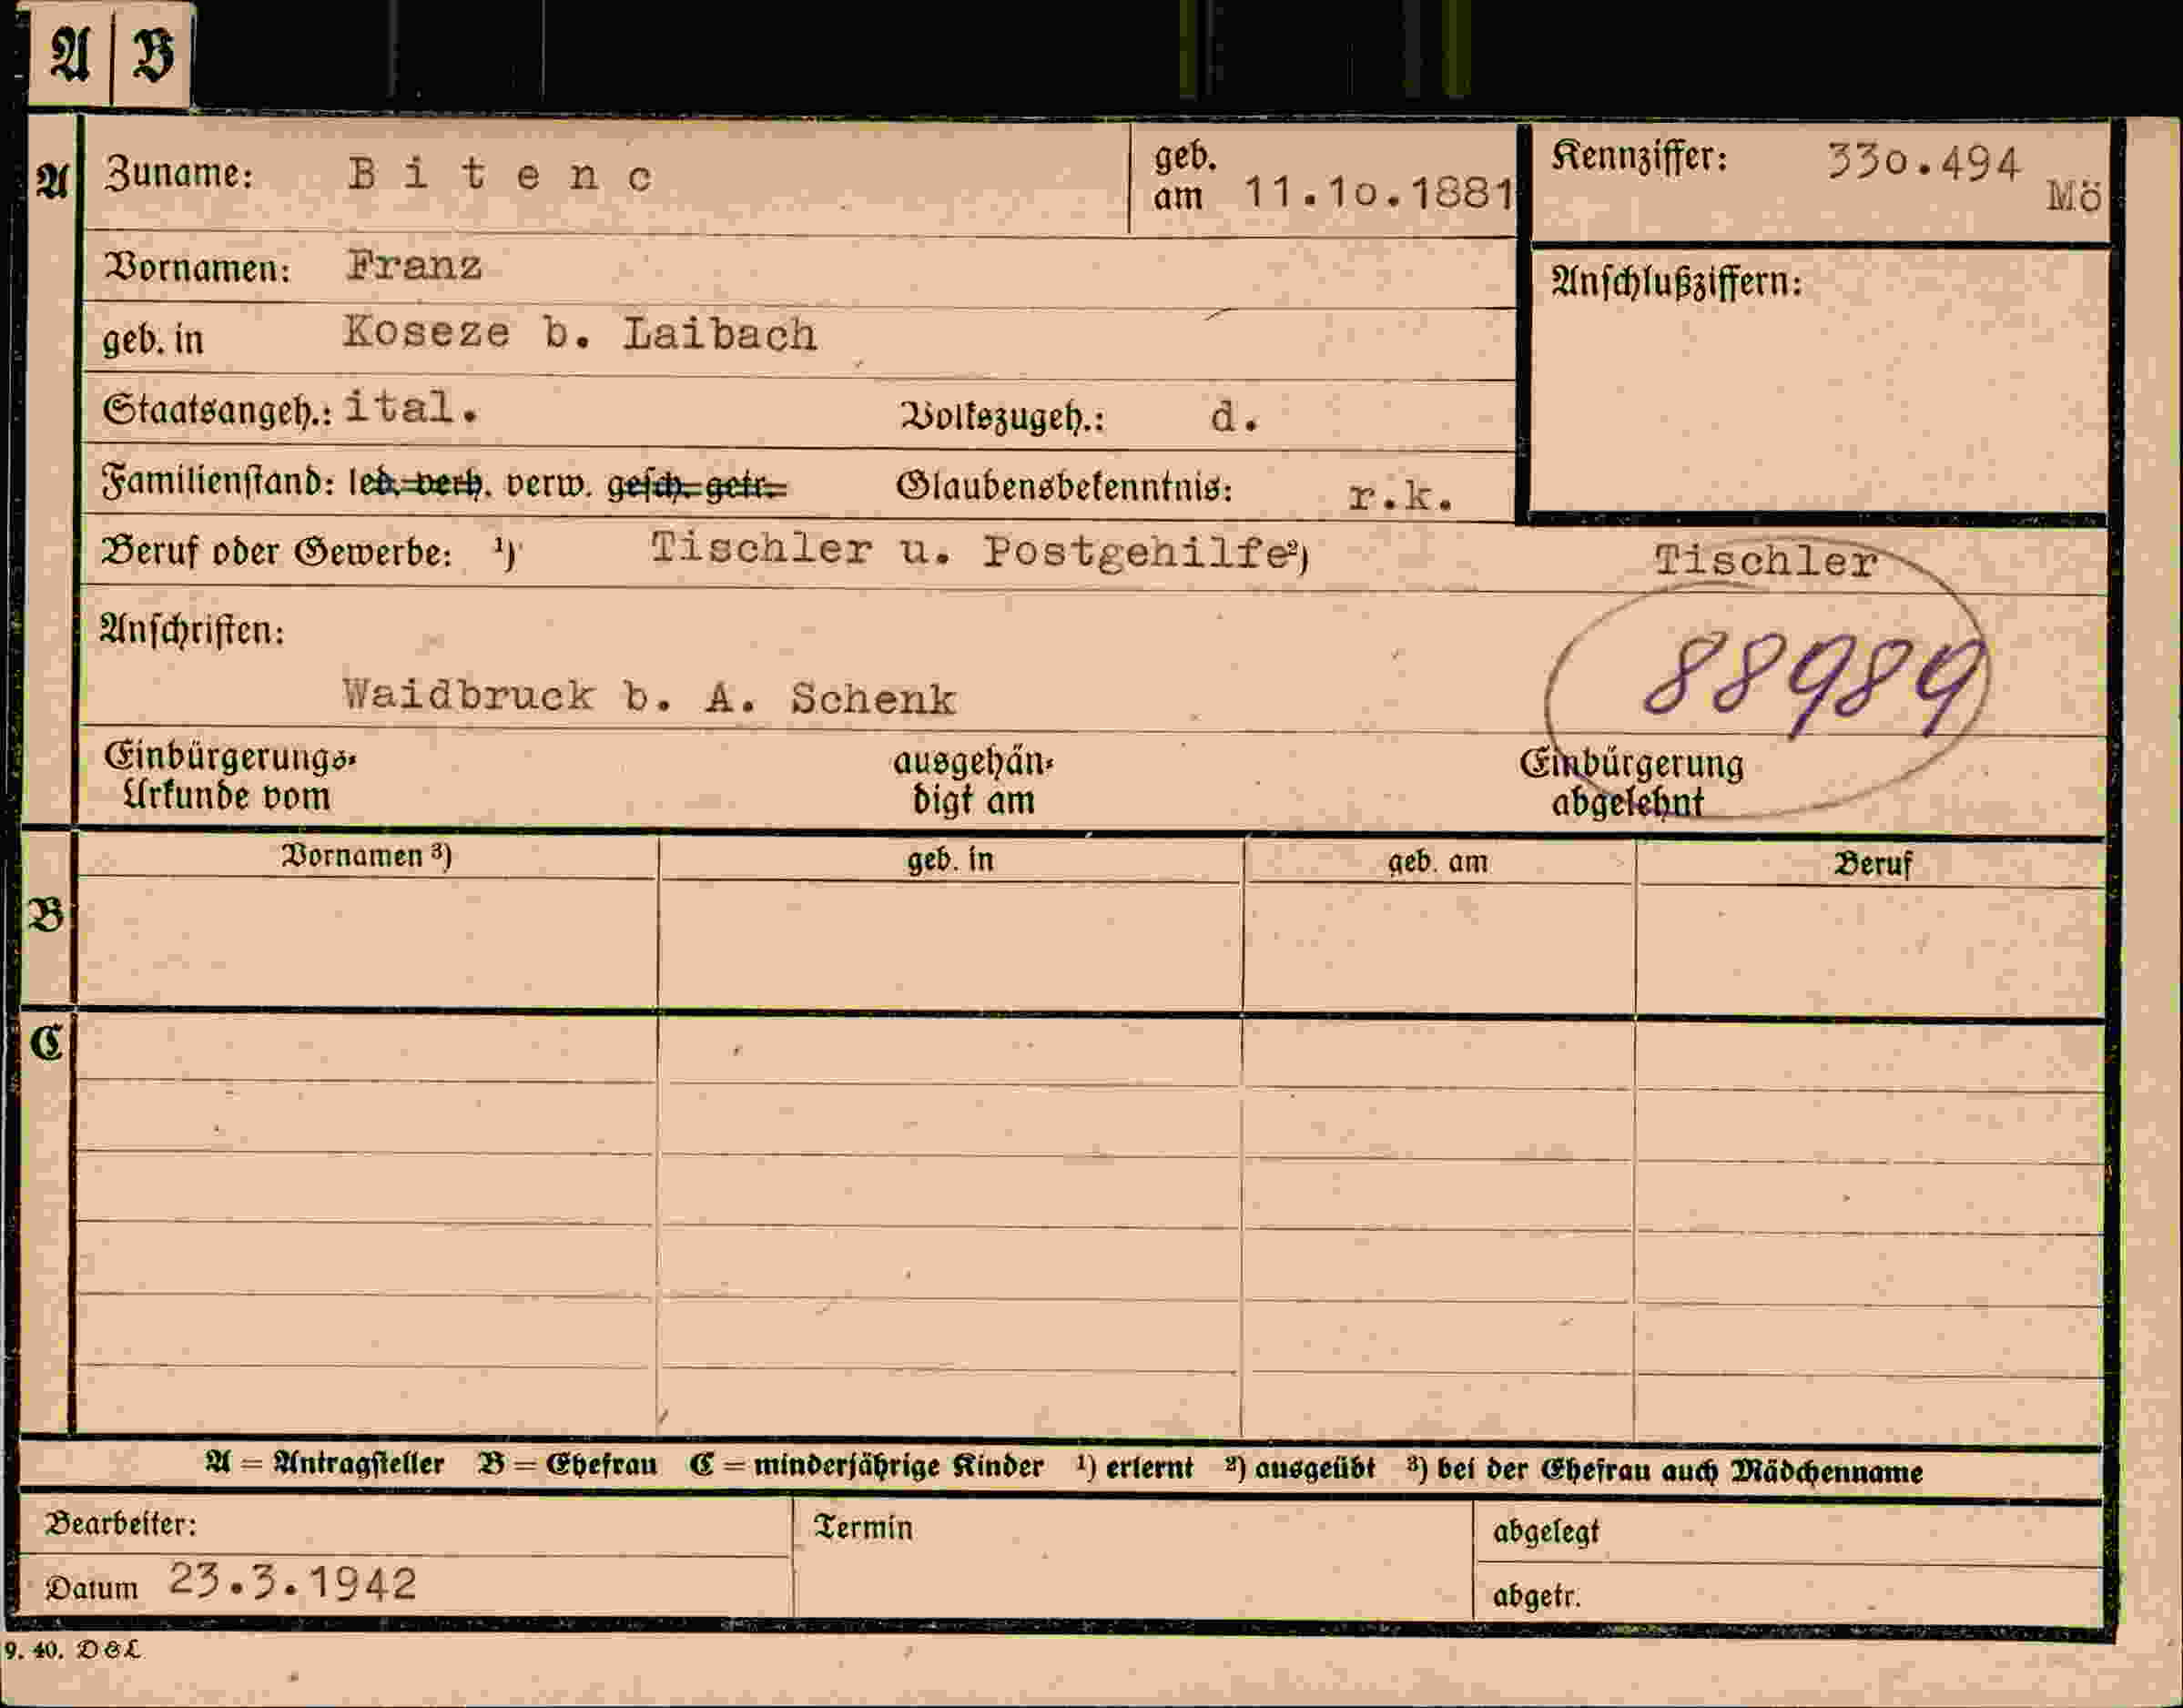 A | B
A Zuname: Bitenc geb. am 11.10.1881 Kennziffer: 330.494 Mö
Vornamen: Franz Anschlußziffern:
geb. in Koseze b. Laibach
Staatsangeh.: ital. Volkszugeh.: d.
Familienstand: led. verh. verw. gesch. getr. Glaubensbekenntnis: r.k.
Beruf oder Gewerbe: ¹) Tischler u. Postgehilfe ²) Tischler
Anschriften:
88989
Waidbruck b. A. Schenk
Einbürgerungs- ausgehän- Einbürgerung
Urkunde vom digt am abgelehnt
Vornamen ³) geb. in geb. am Beruf
B
C
A = Antragsteller B = Ehefrau C = minderjährige Kinder ¹) erlernt ²) ausgeübt ³) bei der Ehefrau auch Mädchenname
Bearbeiter: Termin abgelegt
Datum 23.3.1942 abgetr.
9. 40. DEL